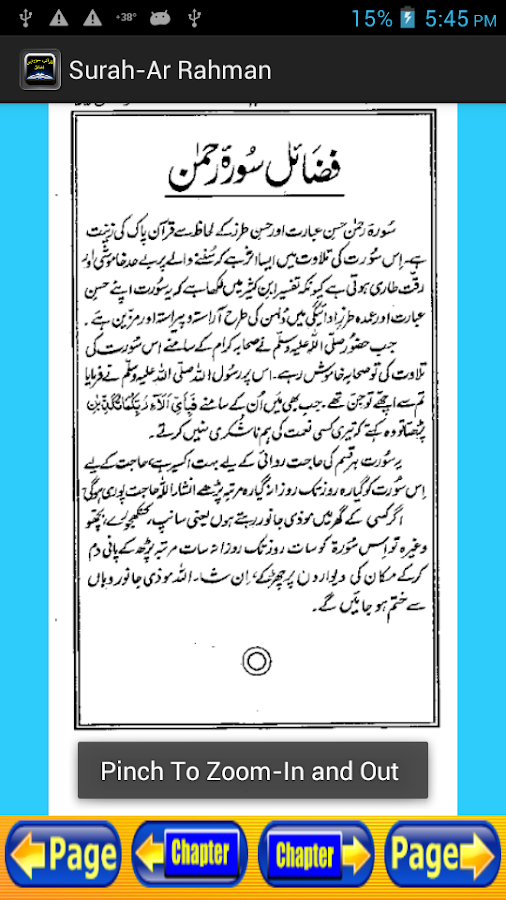 +38°
15%
5:45 PM
Surah-Ar Rahman
فضائل سُورۂ رحمٰن
سُورۃ رحمٰن حسن عبارت اور حسن طرز کے لحاظ سے قرآن پاک کی زینت
ہے۔ اس سُورت کی تلاوت میں ایسا اثر ہے کہ سُننے والے پر بے حد خاموشی اور
رقّت طاری ہوتی ہے کیونکہ تفسیر ابن کثیر میں لکھا ہے کہ یہ سُورت اپنے حسن
عبارت اور عمدہ طرز ادائیگی میں دُلہن کی طرح آراستہ و پیراستہ اور مزین ہے۔
جب حضور صلّی اللہ علیہ وسلّم نے صحابہ کرام کے سامنے اس سُورت کی
تلاوت کی تو صحابہ خاموش رہے۔ اس پر رسول اللہ صلی اللہ علیہ وسلّم نے فرمایا
تم سے اچھے تو جن تھے۔ جب بھی میں اُن کے سامنے فَبِاَیِّ اٰلَآءِ رَبِّکُمَا تُکَذِّبٰنِ
پڑھتا تو وہ کہتے کہ تیری کسی نعمت کی ہم ناشکری نہیں کرتے۔
یہ سورت ہر قسم کی حاجت روائی کے لیے بہت اکسیر ہے، حاجت کے لیے
اس سُورت کو گیارہ روز تک روزانہ گیارہ مرتبہ پڑھے انشاء اللہ حاجت پوری ہوگی
اگر کسی کے گھر میں موذی جانور رہتے ہوں یعنی سانپ، کنکھجورے، بچھّو
وغیرہ تو اس سُورۃ کو سات روز تک روزانہ سات مرتبہ پڑھ کے پانی دم
کر کے مکان کی دیواروں پر چھڑکے، اِن شاء اللہ موذی جانور وہاں
سے ختم ہو جائیں گے۔
Pinch To Zoom-In and Out
Page
Chapter
Chapter
Page